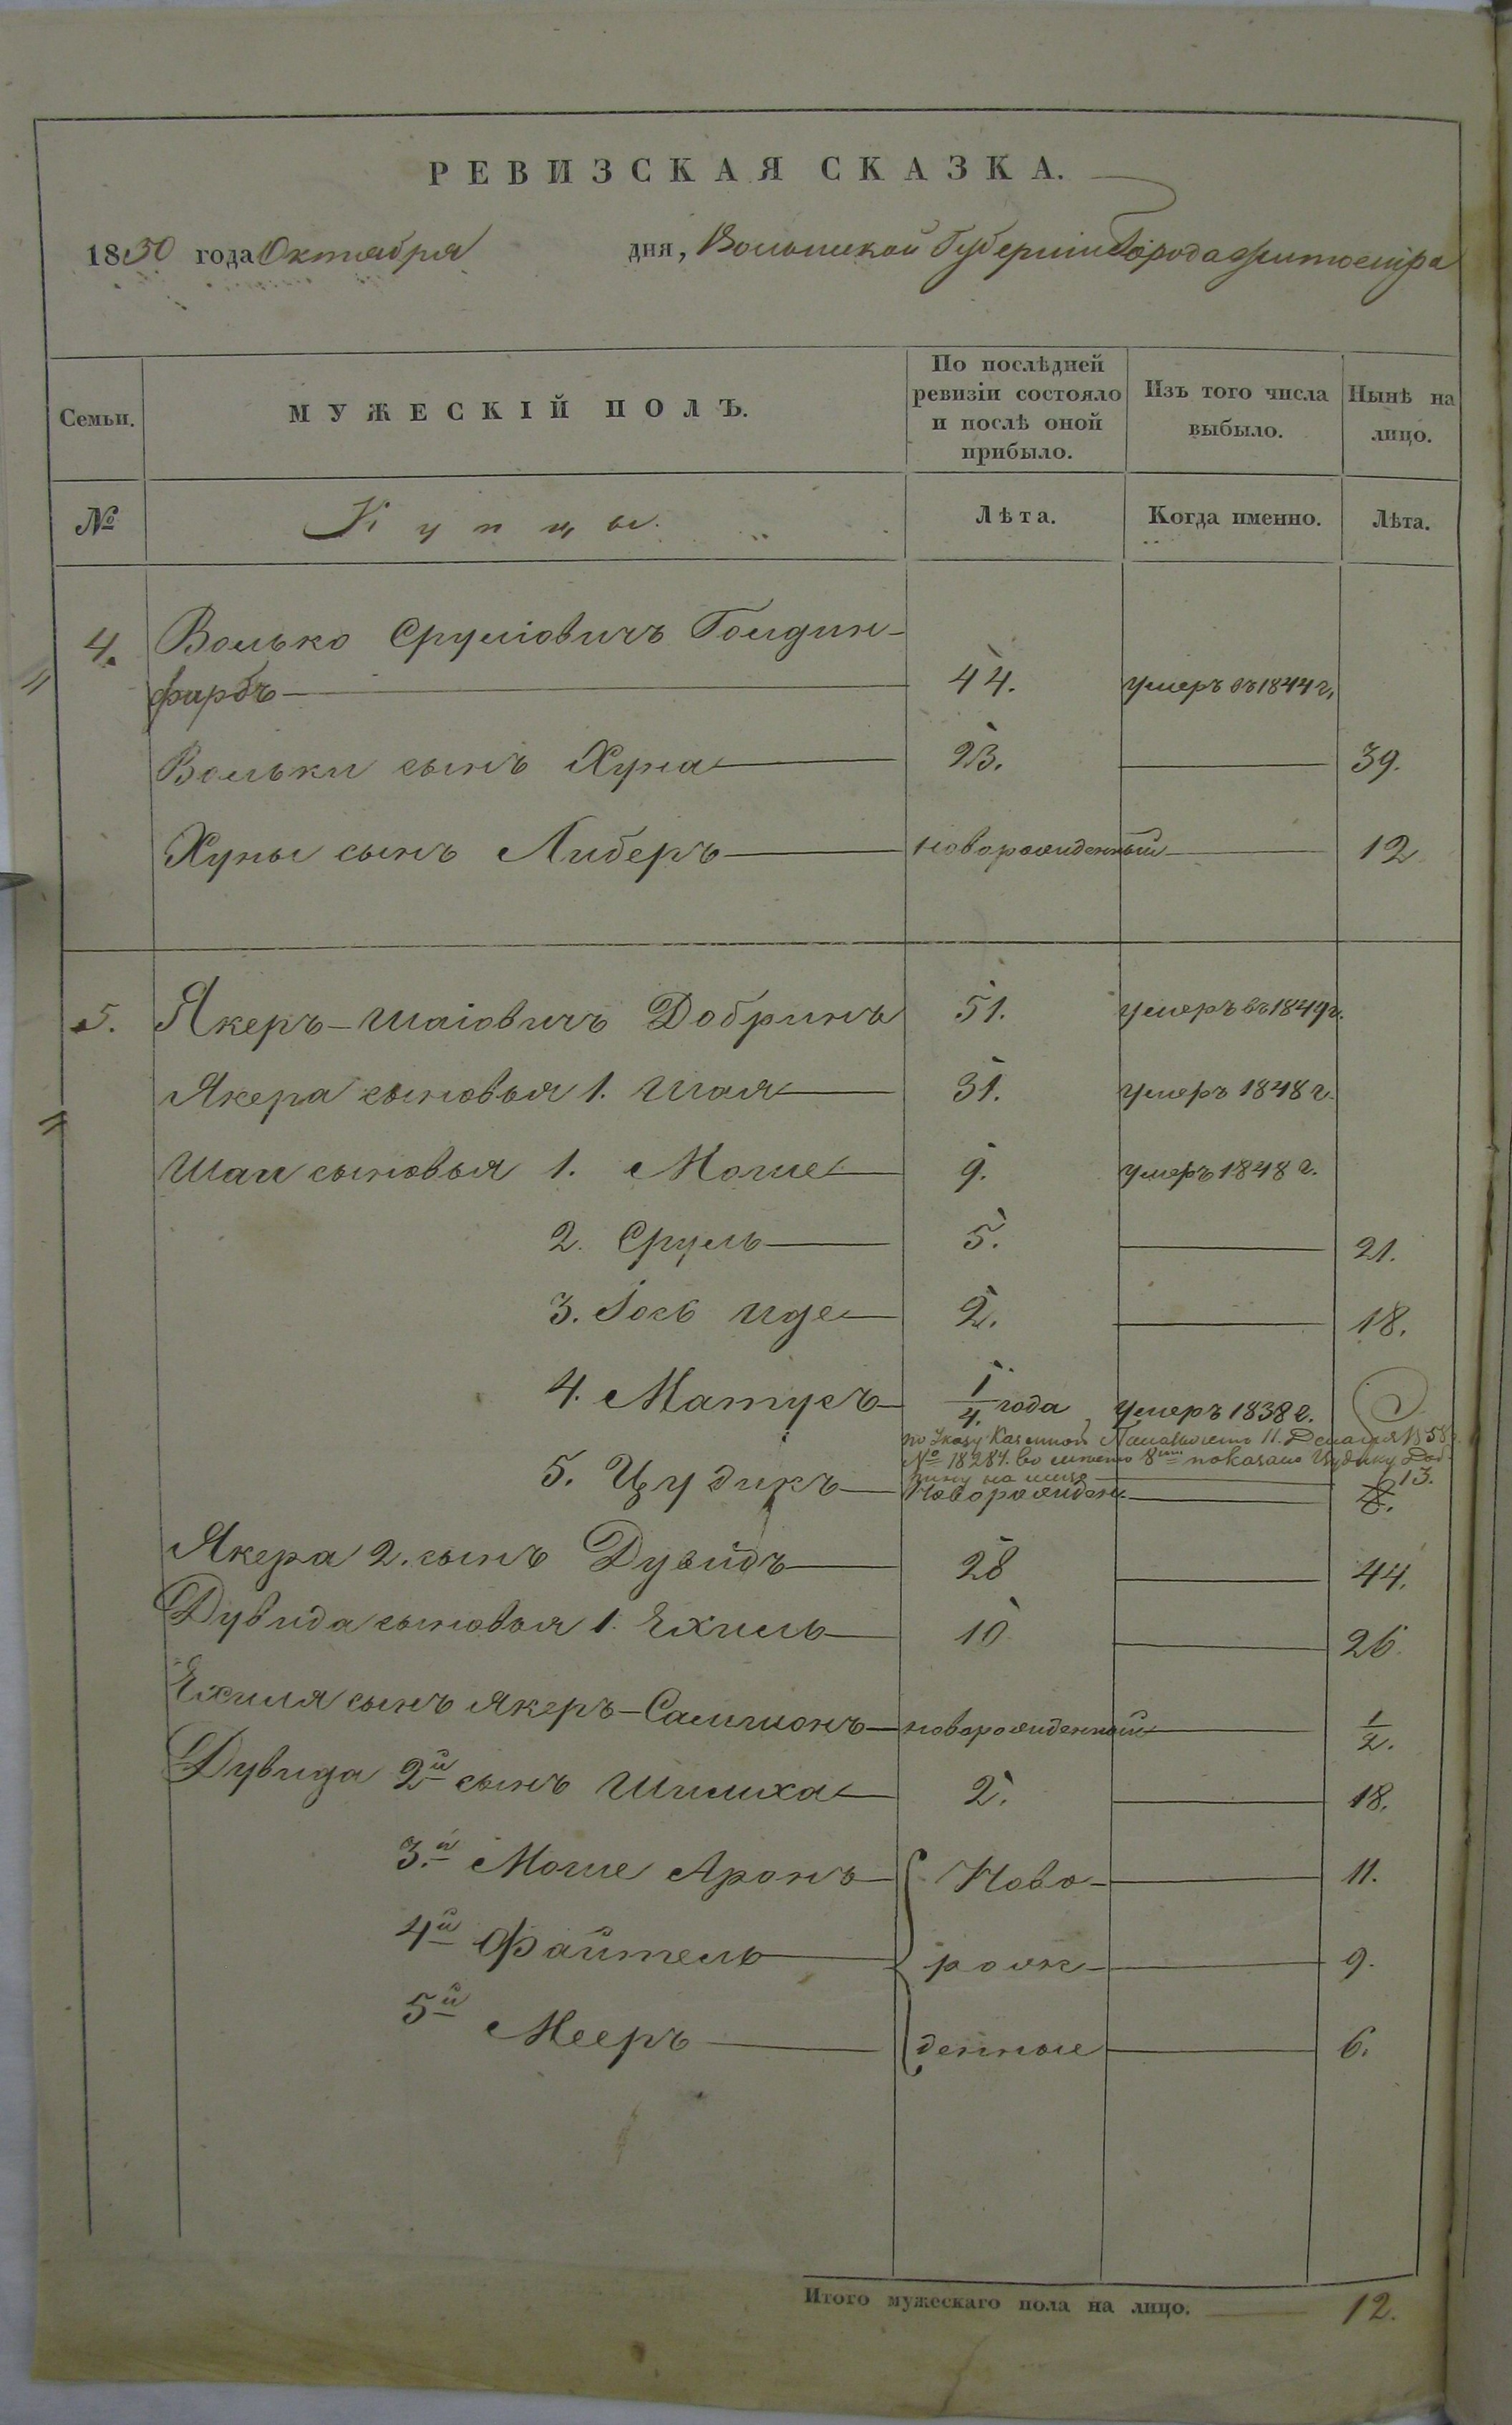 РЕВИЗСКАЯ СКАЗКА.
1850 года Октября дня, Волынской Губерніи Города Житоміра
Семьи. МУЖЕСКІЙ ПОЛЪ. По послѣдней ревизіи состояло и послѣ оной прибыло. Изъ того числа выбыло. Нынѣ на лицо.
№ Купцы. Лѣта. Когда именно. Лѣта.
4. Волько Сруліовичъ Голдин-
фарбъ 44. умеръ въ 1844 г.
Вольки сынъ Хуна 23. 39.
Хуны сынъ Либеръ новорожденный 12
5. Якеръ-Шаіовичъ Добринъ 51. умеръ въ 1849 г.
Якера сыновья 1. Шая 31. умеръ 1848 г.
Шаи сыновья 1. Моше 9. умеръ 1848 г.
2. Сруль 5. 21.
3. Іось Иде 2. 18.
4. Матусъ 1/4. года умеръ 1838 г.
по Указу Казенной Палаты 11.
№ 18284. вместо 8ми показано Цудику Доб-
рину на лицо 13.
5. Цудикъ Новорожден. 8.
Якера 2. сынъ Дувидъ 28 44.
Дувида сыновья 1. Ехиль 10 26.
Ехиля сынъ Якеръ-Самшонъ новорожденный 1/2.
Дувида 2й сынъ Шилиха 2. 18.
3.й Моше Аронъ Ново- 11.
4й Файтель рож- 9.
5й Мееръ денные 6.
Итого мужескаго пола на лицо. 12.